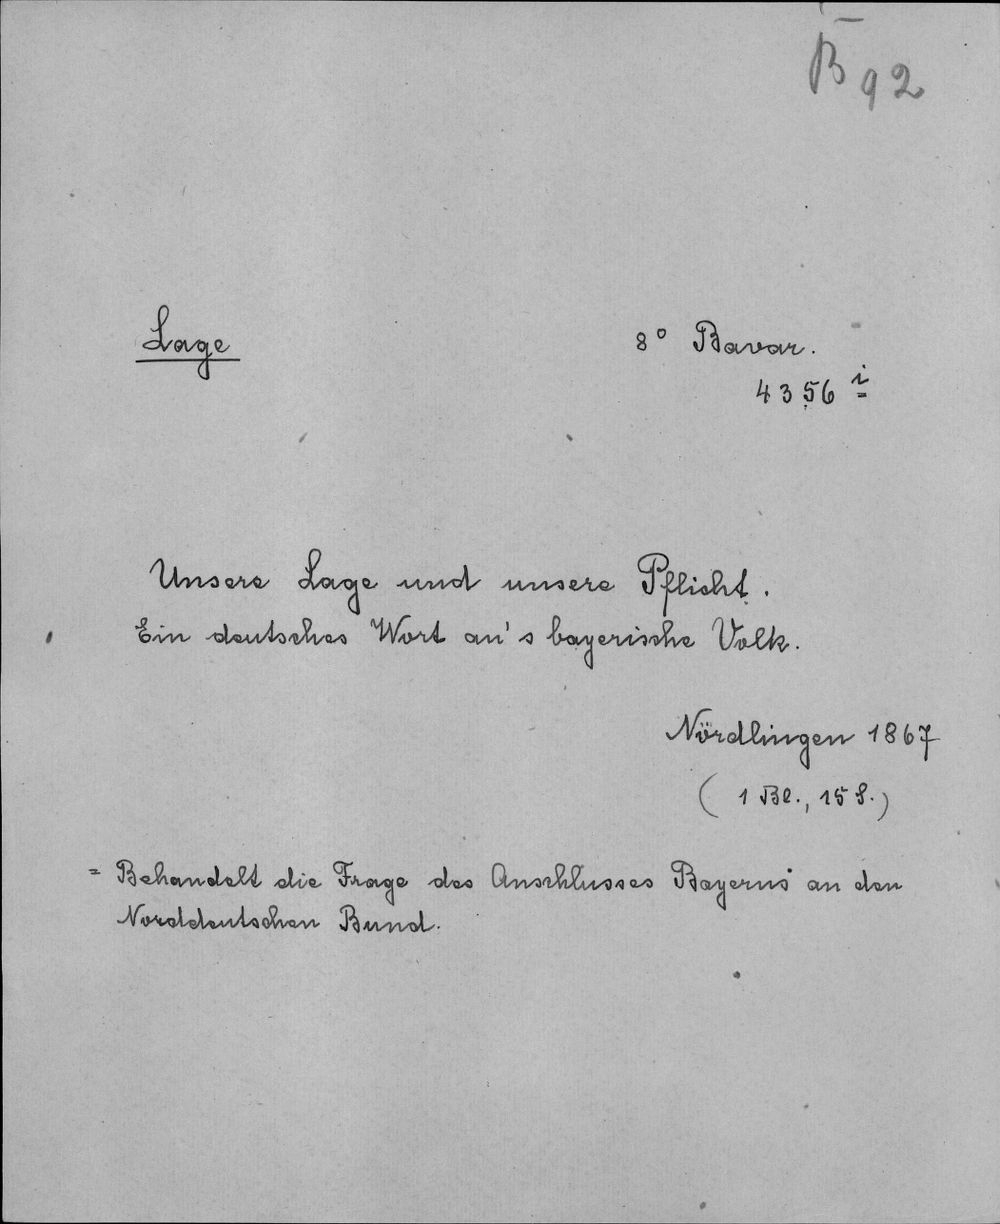 B 92
Lage
8° Bavar.
4356 i
Unsere Lage und unsere Pflicht.
Ein deutsches Wort an's bayerische Volk.
Nördlingen 1867
( 1 Bl., 15 S.)
= Behandelt die Frage des Anschlusses Bayerns an den
Norddeutschen Bund.